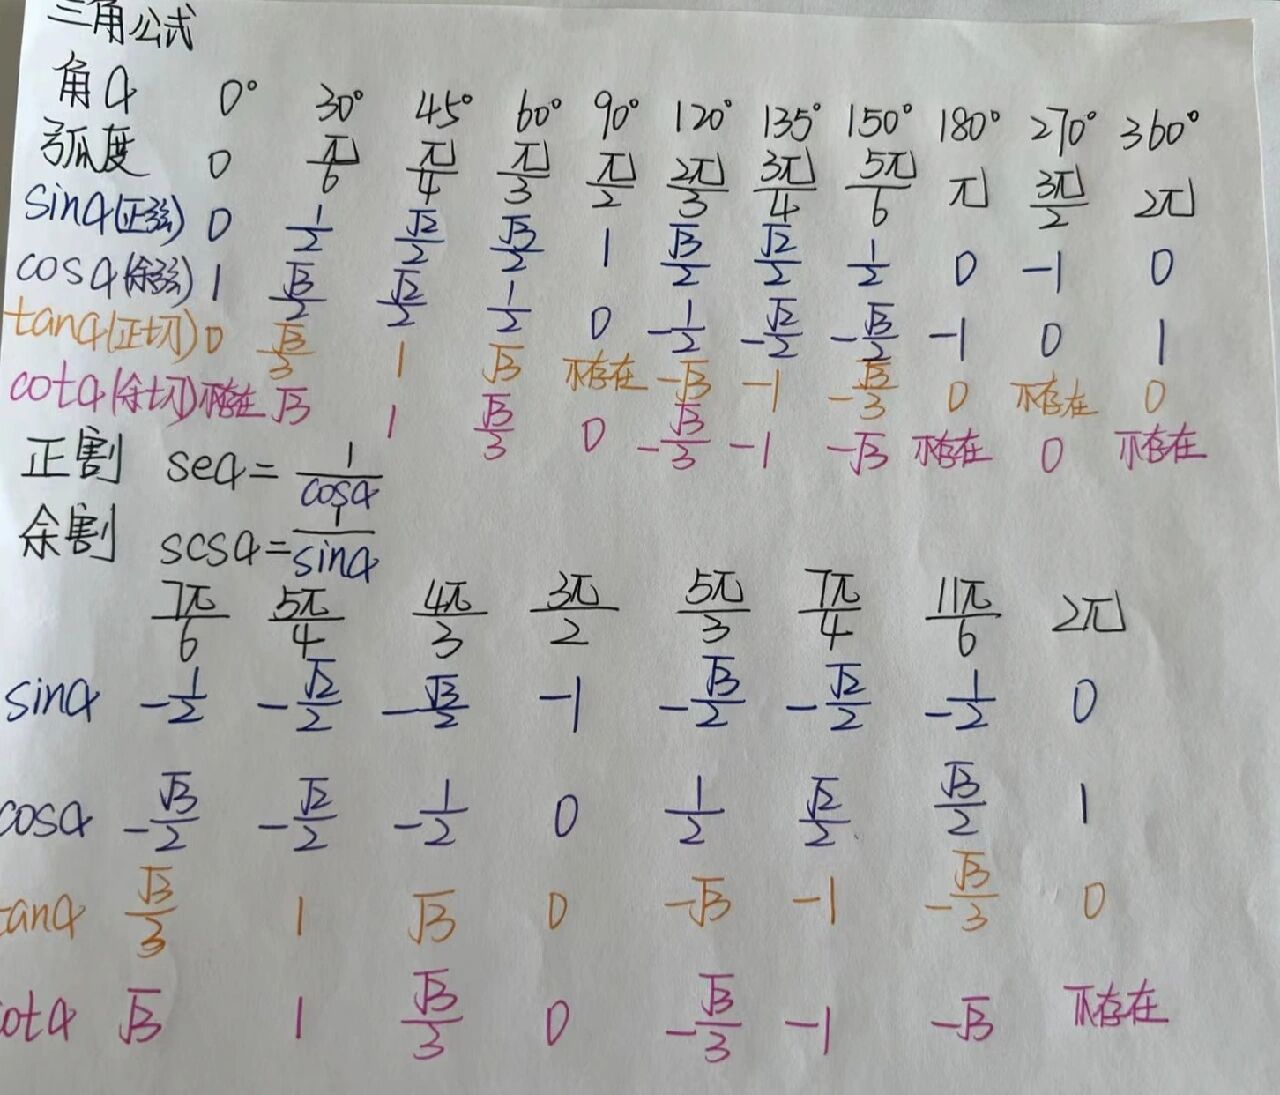 三角公式
角α 0° 30° 45° 60° 90° 120° 135° 150° 180° 270° 360°
弧度 0 π/6 π/4 π/3 π/2 2π/3 3π/4 5π/6 π 3π/2 2π
sinα(正弦) 0 1/2 √2/2 √3/2 1 √3/2 √2/2 1/2 0 -1 0
cosα(余弦) 1 √3/2 √2/2 1/2 0 -1/2 -√2/2 -√3/2 -1 0 1
tanα(正切) 0 √3/3 1 √3 不存在 -√3 -1 -√3/3 0 不存在 0
cotα(余切) 不存在 √3 1 √3/3 0 -√3/3 -1 -√3 不存在 0 不存在
正割 seα=1/cosα
余割 scsα=1/sinα
7π/6 5π/4 4π/3 3π/2 5π/3 7π/4 11π/6 2π
sinα -1/2 -√2/2 -√3/2 -1 -√3/2 -√2/2 -1/2 0
cosα -√3/2 -√2/2 -1/2 0 1/2 √2/2 √3/2 1
tanα √3/3 1 √3 0 -√3 -1 -√3/3 0
otα √3 1 √3/3 0 -√3/3 -1 -√3 不存在